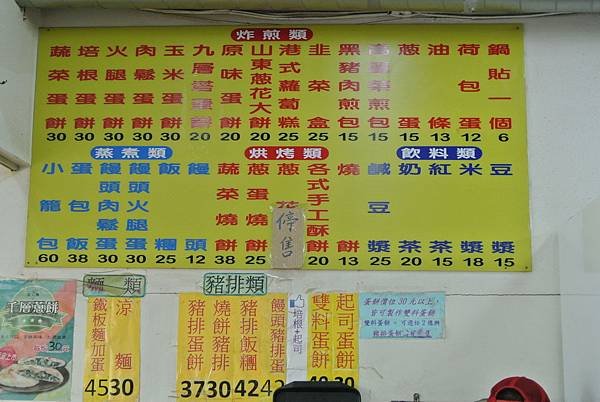 炸煎類
蔬菜蛋餅 30
培根蛋餅 30
火腿蛋餅 30
肉鬆蛋餅 30
玉米蛋餅 30
九層塔蛋餅 20
原味蛋餅 20
山東蔥花大餅 20
港式蘿蔔糕 25
韭菜盒 25
黑豬肉煎包 15
高麗菜煎包 15
蔥蛋 15
油條 13
荷包蛋 12
鍋貼一個 6
蒸煮類
小籠包 60
蛋包飯 38
饅頭肉鬆蛋 30
饅頭火腿蛋 30
飯糰 25
饅頭 12
烘烤類
蔬菜蛋燒餅 38
蔥蛋燒餅 25
停售
各式手工酥餅 20
燒餅 13
飲料類
鹹豆漿 25
奶茶 20
紅茶 15
米漿 18
豆漿 15
千層蔥餅
30元
麵類
鐵板麵加蛋 45
涼麵 30
豬排類
豬排蛋餅 37
燒餅豬排 30
豬排飯糰 42
饅頭豬排蛋
培根+起司
雙料蛋餅 40
起司蛋餅 30
蛋餅價位30元以上,
皆可製作雙料蛋餅